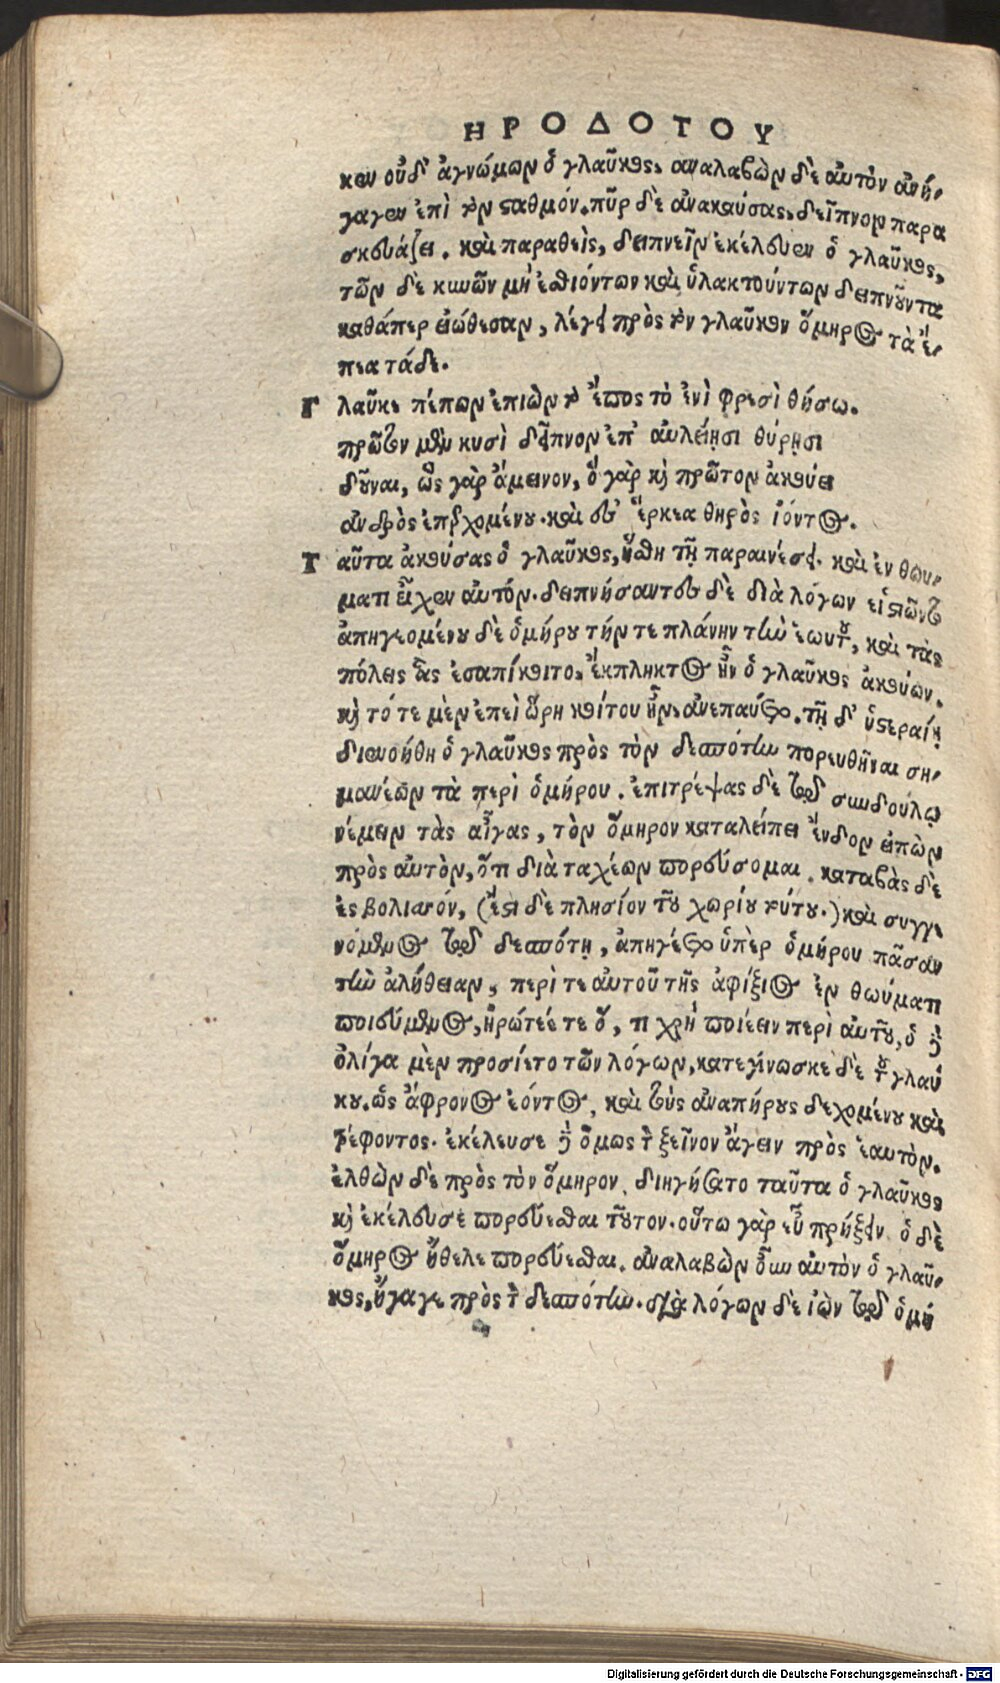 ΗΡΟΔΟΤΟΥ
κεν οὐδ' ἀγνώμων ὁ γλαῦκος. ἀναλαβὼν δὲ αὐτὸν ἀνή-
γαγεν ἐπὶ τὸν σταθμόν. πῦρ δὲ ἀνακαύσας, δεῖπνον παρα
σκευάζει. καὶ παραθεὶς, δειπνεῖν ἐκέλευεν ὁ γλαῦκος,
τῶν δὲ κυνῶν μὴ ἐσθιόντων καὶ ὑλακτούντων δειπνοῦντα
καθάπερ εἰώθεσαν, λέγει πρὸς τὸν γλαῦκον ὅμηρος τὰ ἔ-
πεα τάδε.
Γ λαῦκε πέπων ἐπιὼν τὸ ἔπος τὸ ἐνὶ φρεσὶ θήσω.
πρῶτον μὲν κυσὶ δεῖπνον ἐπ' αὐλείῃσι θύρῃσι
δοῦναι, ὣς γὰρ ἄμεινον, ὁ γὰρ καὶ πρῶτον ἀκούει
ἀνδρὸς ἐπερχομένου. καὶ ἐς ἕρκεα θηρὸς ἰόντος.
Τ αῦτα ἀκούσας ὁ γλαῦκος, ἥσθη τῇ παραινέσει. καὶ ἐν θωυ-
ματι εἶχεν αὐτόν. δειπνήσαντες δὲ διὰ λόγων εἱστιῶντο
ἀπηγεομένου δὲ ὁμήρου τήν τε πλάνην τὴν ἑωυτοῦ, καὶ τὰς
πόλεις ἃς ἐσαπίκοιτο, ἔκπληκτος ἦν ὁ γλαῦκος ἀκούων.
καὶ τό τε μὲν ἐπεὶ ὥρη κοίτου ἦν, ἀνεπαύετο. τῇ δ' ὑστεραίῃ
διενοήθη ὁ γλαῦκος πρὸς τὸν δεσπότην πορευθῆναι ση-
μανέων τὰ περὶ ὁμήρου. ἐπιτρέψας δὲ τῷ συνδούλῳ
νέμειν τὰς αἶγας, τὸν ὅμηρον καταλείπει ἔνδον εἰπὼν
πρὸς αὐτὸν, ὅτι διὰ ταχέων πορεύσομαι. καταβὰς δὲ
ἐς βολισσόν, (ἔστι δὲ πλησίον τοῦ χωρίου τούτου.) καὶ συγγε
νόμενος τῷ δεσπότῃ, ἀπηγέετο ὑπὲρ ὁμήρου πᾶσαν
τὴν ἀλήθειαν, περί τε αὐτοῦ τῆς ἀφίξιος ἐν θωύματι
ποιεύμενος, ἠρώτεέ τε ὅ, τι χρὴ ποιέειν περὶ αὐτοῦ, ὁ δὲ
ὀλίγα μὲν προσίετο τῶν λόγων, κατεγίνωσκε δὲ τοῦ γλαύ
κου. ὡς ἄφρονος ἐόντος, καὶ τοὺς ἀναπήρους δεχομένου καὶ
τρέφοντος. ἐκέλευσε δὲ ὅμως τὸν ξεῖνον ἄγειν πρὸς ἑαυτὸν.
ἐλθὼν δὲ πρὸς τὸν ὅμηρον, διηγήσατο ταῦτα ὁ γλαῦκος
καὶ ἐκέλευσε πορεύεσθαι τοῦτον. οὕτω γὰρ εὖ πρήξειν ὁ δὲ
ὅμηρος ἤθελε πορεύεσθαι. ἀναλαβὼν οὖν αὐτὸν ὁ γλαῦ-
κος, ἤγαγε πρὸς τὸν δεσπότην. διὰ λόγων δὲ ἰὼν τῷ ὁμή
Digitalisierung gefördert durch die Deutsche Forschungsgemeinschaft - DFG